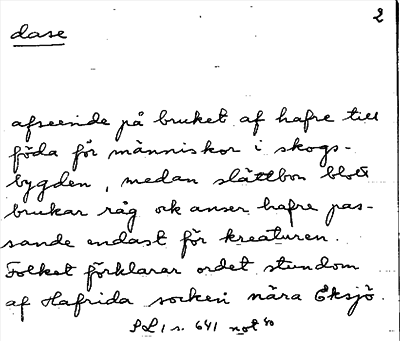 2
dase
afseende på bruket af hafre till
föda för människor i skogs-
bygden, medan slättbon blott
brukar råg ock anser hafre pas-
sande endast för kreaturen.
Folket förklarar ordet stundom
af Hafrida socken nära Eksjö.
SL 1 s. 641 not 40